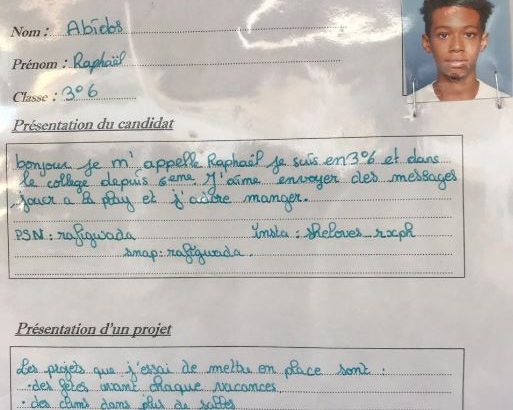 Nom : Abidos
Prénom : Raphaël
Classe : 3°6
Présentation du candidat
bonjour je m'appelle Raphaël je suis en 3°6 et dans
le collège depuis 6eme. J'aime envoyer des messages
jouer a la play et j'adore manger.
PSN : rafigwada Insta : sheloves_rxph
snap : rafigwada.
Présentation d'un projet
Les projets que j'essai de mettre en place sont :
- des fêtes avant chaque vacances
- des clims dans plus de salles